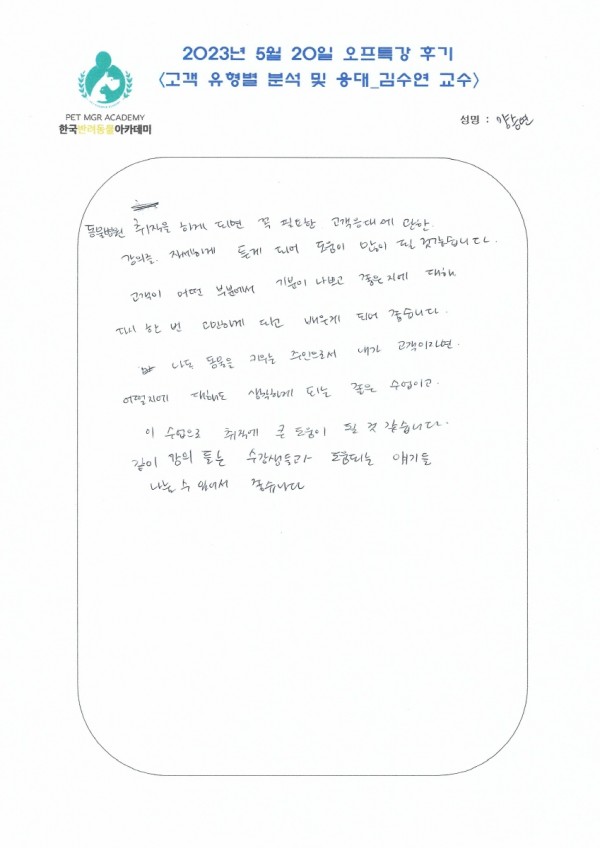 2023년 5월 20일 오프특강 후기
<고객 유형별 분석 및 응대_김수연 교수>
PET MGR ACADEMY
한국반려동물아카데미
성명 :
동물병원 취직을 하게 되면 꼭 필요한 고객응대에 관한
강의를 자세하게 듣게 되어 도움이 많이 될 것같습니다.
고객이 어떤 부분에서 기분이 나쁘고 좋은지에 대해
다시 한 번 고민하게 되고 배우게 되어 좋습니다.
나도 동물을 키우는 주인으로서 내가 고객이라면.
어떨지에 대해도 생각하게 되는 좋은 수업이고.
이 수업으로 취직에 큰 도움이 될 것 같습니다.
같이 강의 듣는 수강생들과 도움되는 얘기를
나눌 수 있어서 좋습니다